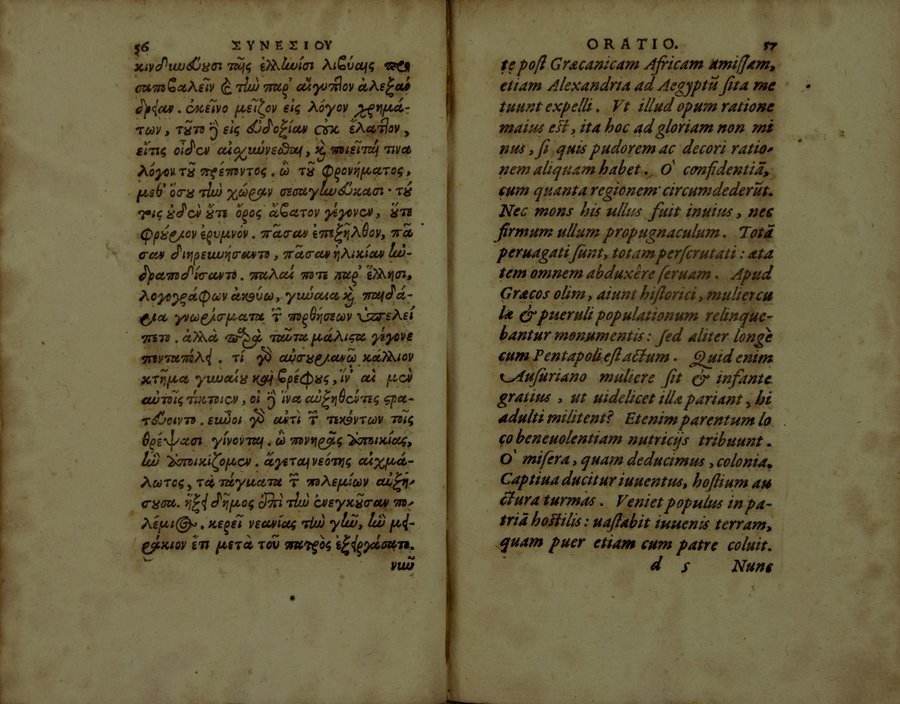 56 ΣΥΝΕΣΙΟΥ
κινδυνεύουσι ταῖς ἑλληνίσι λιβύαις προς
απαβαλεῖν καὶ τὴν παρ' αἴγυπτον ἀλεξάν
δρειαν. ἐκεῖνο μεῖζον εἰς λόγον χρημά-
των, τοῦτο ἢ εἰς εὐδοξίαν οὐκ ἔλαττον,
εἴτις οἶδεν αἰσχύνεσθαι, καὶ ποιεῖταί τινα
λόγον τοῦ πρέποντος. ὢ τοῦ φρονήματος,
μεθ' ὅσου τὴν χώραν σεσαγηνεύκασι· τού
τοις οὐδὲν οὔτε ὄρος ἄβατον γέγονεν, οὔτε
φρούριον ἐρυμνόν. πᾶσαν ἐπεξῆλθον, πᾶ
σαν διηρευνήσαντο, πᾶσαν ἡλικίαν ἠν-
δραποδίσαντο. παλαί ποτε παρ' ἕλλησι,
λογογράφων ἀκούω, γύναια καὶ παιδά-
ρια γνωρίσματα τῶν πορθήσεων ὑπελεί
πετο. ἀλλὰ παρὰ ταῦτα μάλιστα γέγονε
πενταπόλει. τί γὰρ αὐσουριανῷ κάλλιον
κτῆμα γυναίου καὶ βρέφους, ἵν' αἱ μὲν
αὐτοῖς τίκτοιεν, οἱ ἢ ἵνα αὐξηθέντες στρα-
τεύοιντο. εὖνοι γὰρ ἀντὶ τῶν τεκόντων τοῖς
θρέψασι γίνονται. ὢ πονηρᾶς ἀποικίας,
ἣν ἀποικίζομεν. ἄγεται νεότης αἰχμά-
λωτος, τὰ τάγματα τῶν πολεμίων αὐξή-
σουσα. ἥξει δῆμος ἐπὶ τὴν ἐνεγκοῦσαν πο-
λέμιος. κερεῖ νεανίας τὴν γῆν, ἣν μει-
ράκιον ἔτι μετὰ τοῦ πατρὸς ἐξειργάσατο.
νῦν
ORATIO. 57
te post Græcanicam Africam amissam,
etiam Alexandria ad Aegyptũ sita me
tuunt expelli. Vt illud opum ratione
maius est, ita hoc ad gloriam non mi
nus, si quis pudorem ac decori ratio-
nem aliquam habet. O' confidentiã,
cum quanta regionem circumdederũt.
Nec mons his ullus fuit inuius, nec
firmum ullum propugnaculum. Totã
peruagati sunt, totam perscrutati: æta
tem omnem abduxêre seruam. Apud
Græcos olim, aiunt historici, muliercu
læ & pueruli populationum relinque-
bantur monumentis: sed aliter longè
cum Pentapoli est actum. Quid enim
Ausuriano muliere sit & infante
gratius, ut uidelicet illæ pariant, hi
adulti militent? Etenim parentum lo
co beneuolentiam nutricijs tribuunt.
O' misera, quam deducimus, colonia.
Captiua ducitur iuuentus, hostium au
ctura turmas. Veniet populus in pa-
triã hostilis: uastabit iuuenis terram,
quam puer etiam cum patre coluit.
d 5 Nunc